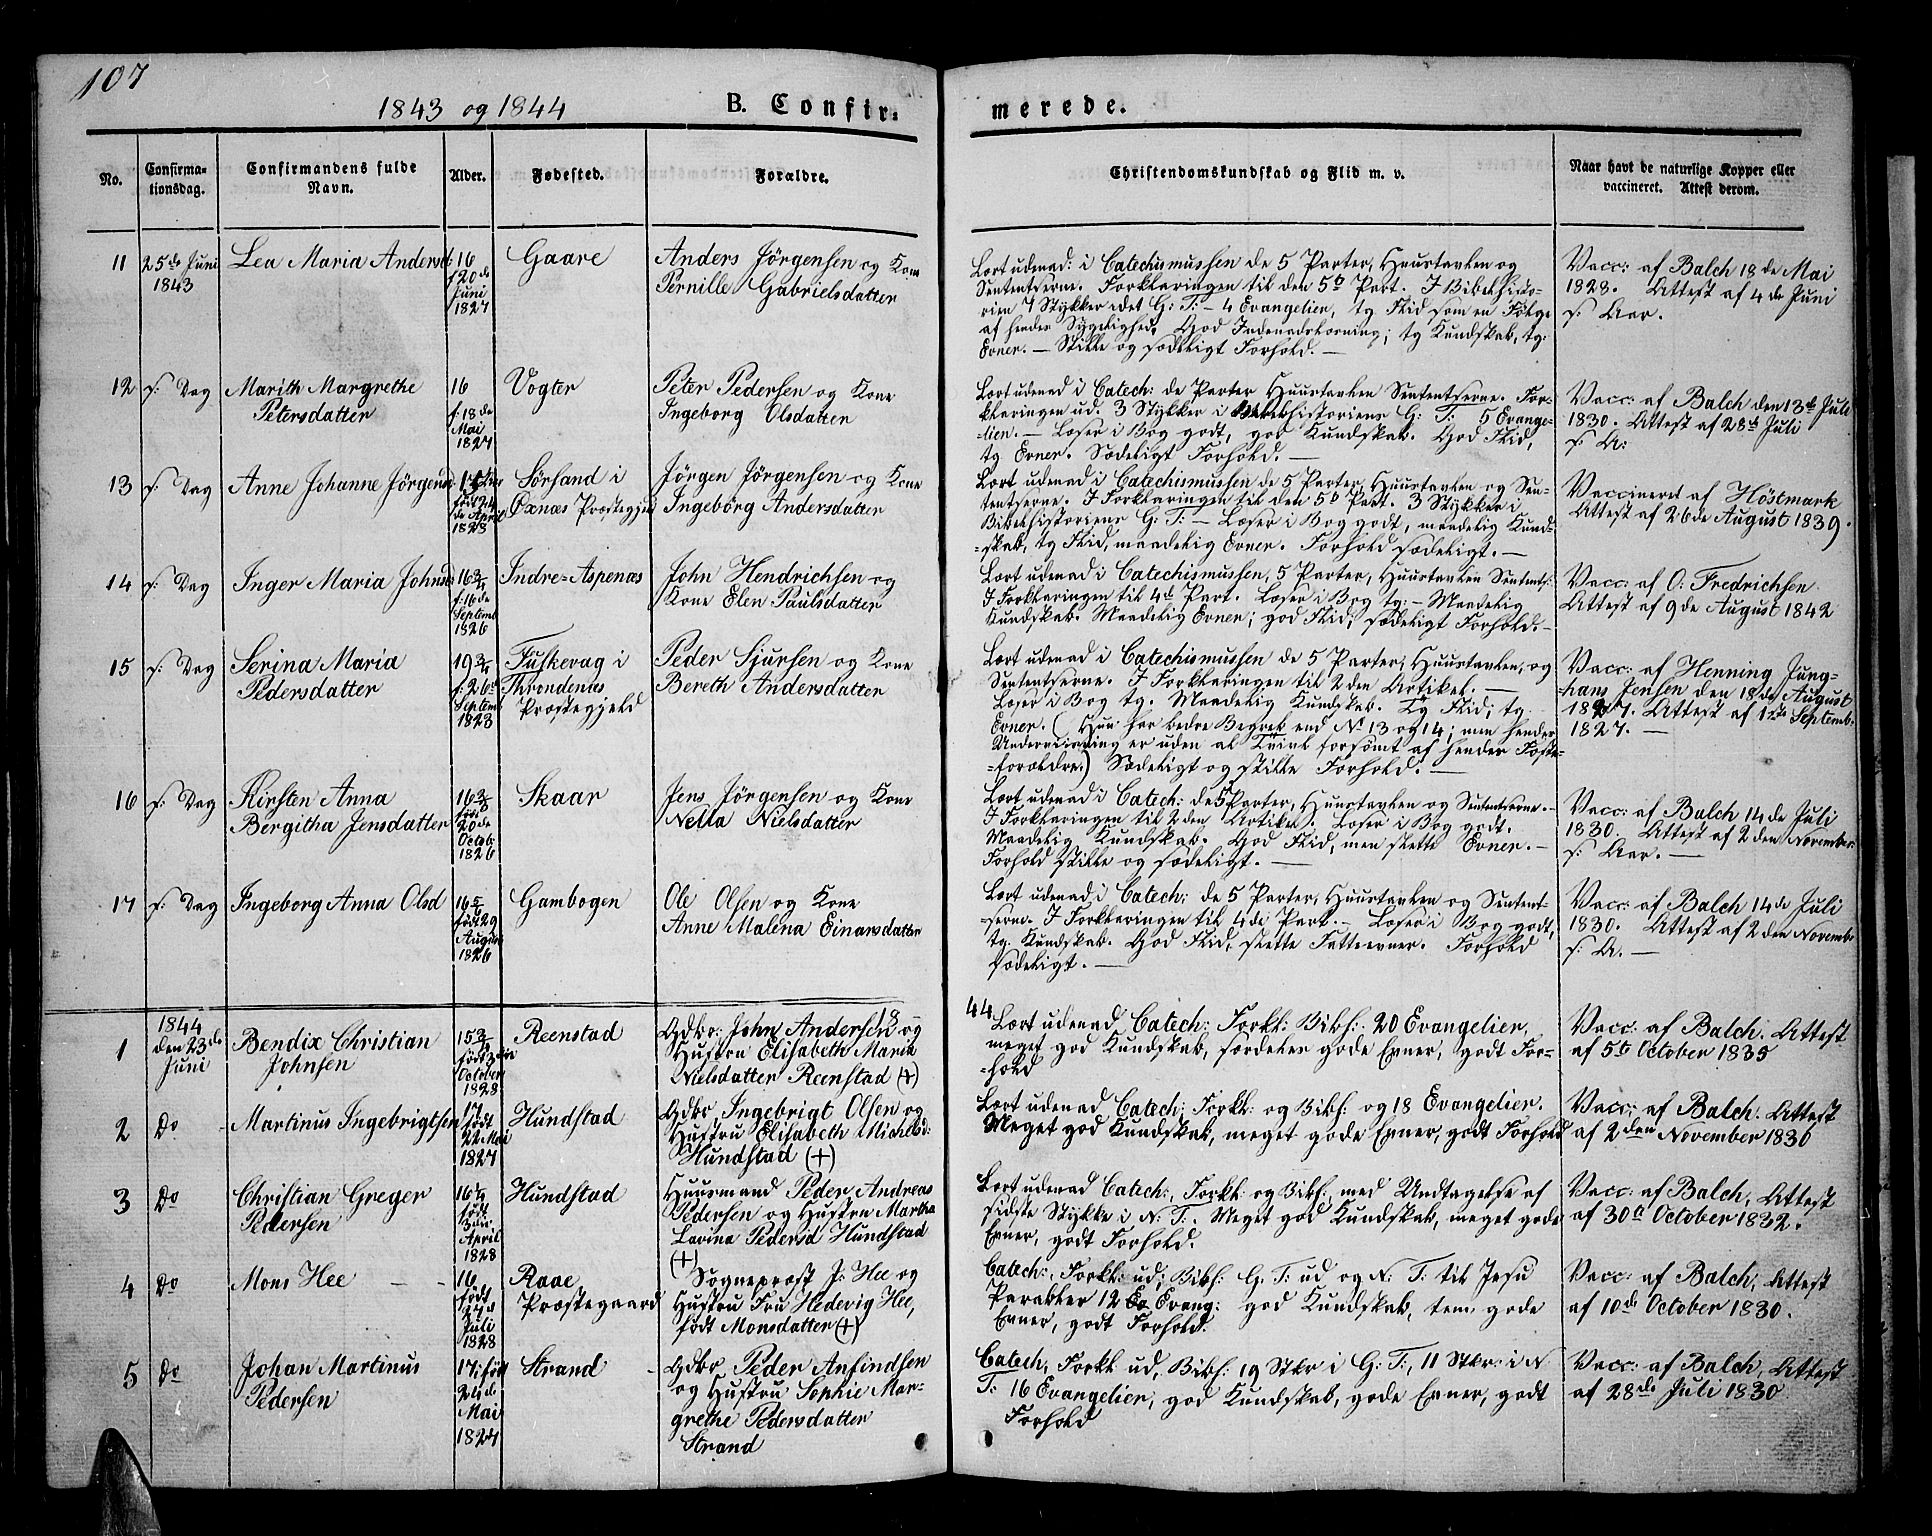 107
1843 og 1844 B. Confir- merede.
No. Confirma- tionsdag. Confirmandens fulde Navn. Alder. Fødested. Forældre. Christendomskundskab og Flid m. v. Naar havt de naturlige Kopper eller vaccineret. Attest derom.
11 25de Juni 1843
Lea Maria Andersd:
16 f 20de Juni 1827
Gaare
Anders Jörgensen og Kone
Pernille Gabrielsdatter
Lært udenad: i Catechismussen de 5 Parter, Huustavlen og
Sententserne. Forklaringen til den 5te Part. I Bibelhisto-
rien 7 Stykker i det G: T: - 4 Evangelier, tg Flid som en Følge
af hendes Sygelighed. God Indenadslæsning; tg Kundskab, tg:
Evner. - Stille og sædeligt Forhold. -
Vacc: af Balch 18de Mai
1828. Attest af 4de Juni
s: Aar.
12 s: Dag
Marith Margrethe
Petersdatter
16 f: 18de Mai 1827
Vogter
Peter Pedersen og Kone
Ingeborg Olsdatter
Lært udenad i Catech: de Parter Huustavlen Sententserne. For-
klaringen ud. 3 Stykker i Bibelhistoriens G: T: 5 Evange-
lier. - Læser i Bog godt, god Kundskab. God Flid,
tg Evner. Sædeligt Forhold. -
Vacc: af Balch den 13de Juli
1830. Attest af 28de Juli
s: A:
13 s: Dag
Anne Johanne Jörgensd:
født 24de April 1828
Sørsand i
Øxnæs Præstegjeld
Jörgen Jörgensen og Kone
Ingebörg Andersdatter
Lært udenad i Catechismussen de 5 Parter, Huustavlen og Sen-
tentserne. I Forklaringen til den 5te Part. 3 Stykker i
Bibelhistoriens G: T: - Læser i Bog godt, maadelig Kund-
-skab, tg Flid, maadelig Evner. Forhold sædeligt. -
Vaccineret af Höstmark
Attest af 26de August 1839.
14 s: Dag
Inger Maria Johnsd:
16 3/4 f: 16de Septemb 1826
Indre-Aspenæs
John Hendrichsen og
Kone Elen Paulsdatter
Lært udenad i Catechismussen, 5 Parter, Huustavlen Sentents:
I Forklaringen til 4de Part. Læser i Bog tg: - Maadelig
Kundskab. Maadelig Evner; god Flid; sædeligt Forhold. -
Vacc: af O: Fredrichsen
Attest af 9de August 1842
15 s: Dag
Serina Maria
Pedersdatter
19 3/4 f: 26de Septemb 1823
Fuskevag i
Throndenæs
Præstegjeld
Peder Sjursen og Kone
Bereth Andersdatter
Lært udenad i Catechismussen de 5 Parter, Huustavlen, og
Sententserne. I Forklaringen til 2den Artikel. -
Læser i Bog tg. Maadelig Kundskab. Tg Flid; tg
Evner. (Hun har bedre Begreb end N 13 og 14; men hendes
Underviisning er uden al Tvivl forsømt af hendes Foste-
-forældre.) Sædeligt og stille Forhold. -
Vacc: af Henning Jung-
hans Jensen den 18de August
1827. Attest af 1ste Septemb.
1827. -
16 s: Dag
Kirsten Anna
Bergitha Jensdatter
født 20de Octob 1826
Skaar
Jens Jörgensen og Kone
Nella Nielsdatter
Lært udenad i Catech: de 5 Parter, Huustavlen og Sententserne. -
I Forklaringen til 2den Artikel. Læser i Bog godt.
Maadelig Kundskab. God Flid, men slette Evner. -
Forhold stille og sædeligt. -
Vacc: af Balch 14de Juli
1830. Attest af 2den November
s: Aar. -
17 s: Dag
Ingeborg Anna Olsd
16 5/6 født 29 August 1826
Gambogen
Ole Olsen og Kone
Anne Malena Einarsdatter
Lært udenad i Catech: de 5 Parter, Huustavlen og Sentent-
-serne. I Forklaringen til 4de Part. - Læser i Bog godt,
tg. Kundskab. God Flid, slette Fatteevner. Forhold
sædeligt. -
Vacc: af Balch 14de Juli
1830. Attest af 2den Novemb:
s: A. -
18 44
1 1844 den 23de Juni
Bendix Christian
Johnsen
født 3die October 1828
Reenstad
Gdbr: John Andersen og
Hustru Elisabeth Maria
Nielsdatter Reenstad (+)
Lært udenad Catech: Forkl: Bibh: 20 Evangelier.
meget god Kundskab, særdeles gode Evner, godt For-
-hold
Vacc: af Balch. Attest
af 5te October 1835
2 Do
Martinus Ingebrigtsen
17 født 22 Mai 1827
Hundstad
Gdbr. Ingebrigt Olsen og
Hustru Elisabeth Michelsd:
Hundstad (+)
Lært udenad Catech: Forkl: og Bibh: og 18 Evangelier.
Meget god Kundskab, meget gode Evner, godt Forhold
Vacc: af Balch. Attest
af 2den November 1836
3 Do
Christian Greger
Pedersen
16 1/4 født 3die April 1828
Hundstad
Huusmand Peder Andreas
Pedersen og Hustru Martha
Lavina Pedersd Hundstad
(+)
Lært udenad Catech:, Forkl: og Bibh:, med Undtagelse af
sidste Stykke i N: T:. Meget god Kundskab, meget gode
Evner, godt Forhold.
Vacc: af Balch, Attest
af 30te October 1832.
4 Do
Mons Hee - -
16 født 27de Juli 1828
Raae
Præstegaard
Sognepræst J: Hee og
Hustru Fru Hedevig Hee,
født Monsdatter (+)
Catech:, Forkl: ud; Bibh: G. T: ud og N: T: til Jesu
Parabler 12 Evang: god Kundskab, tem gode
Evner, godt Forhold.
Vacc: af Balch, Attest
af 10de October 1830.
5 Do
Johan Martinus
Pedersen
17 født 24de Mai 1827
Strand -
Gdbr Peder Anfindsen
og Hustru Sophie Mar-
grethe Pedersdatter
Strand
Catech, Forkl ud, Bibh: 19 Stkr i G: T:, 11 Stkr: i N
T: 16 Evangelier, god Kundskab, gode Evner, godt
Forhold
Vacc: af Balch, Attest
af 28de Juli 1830